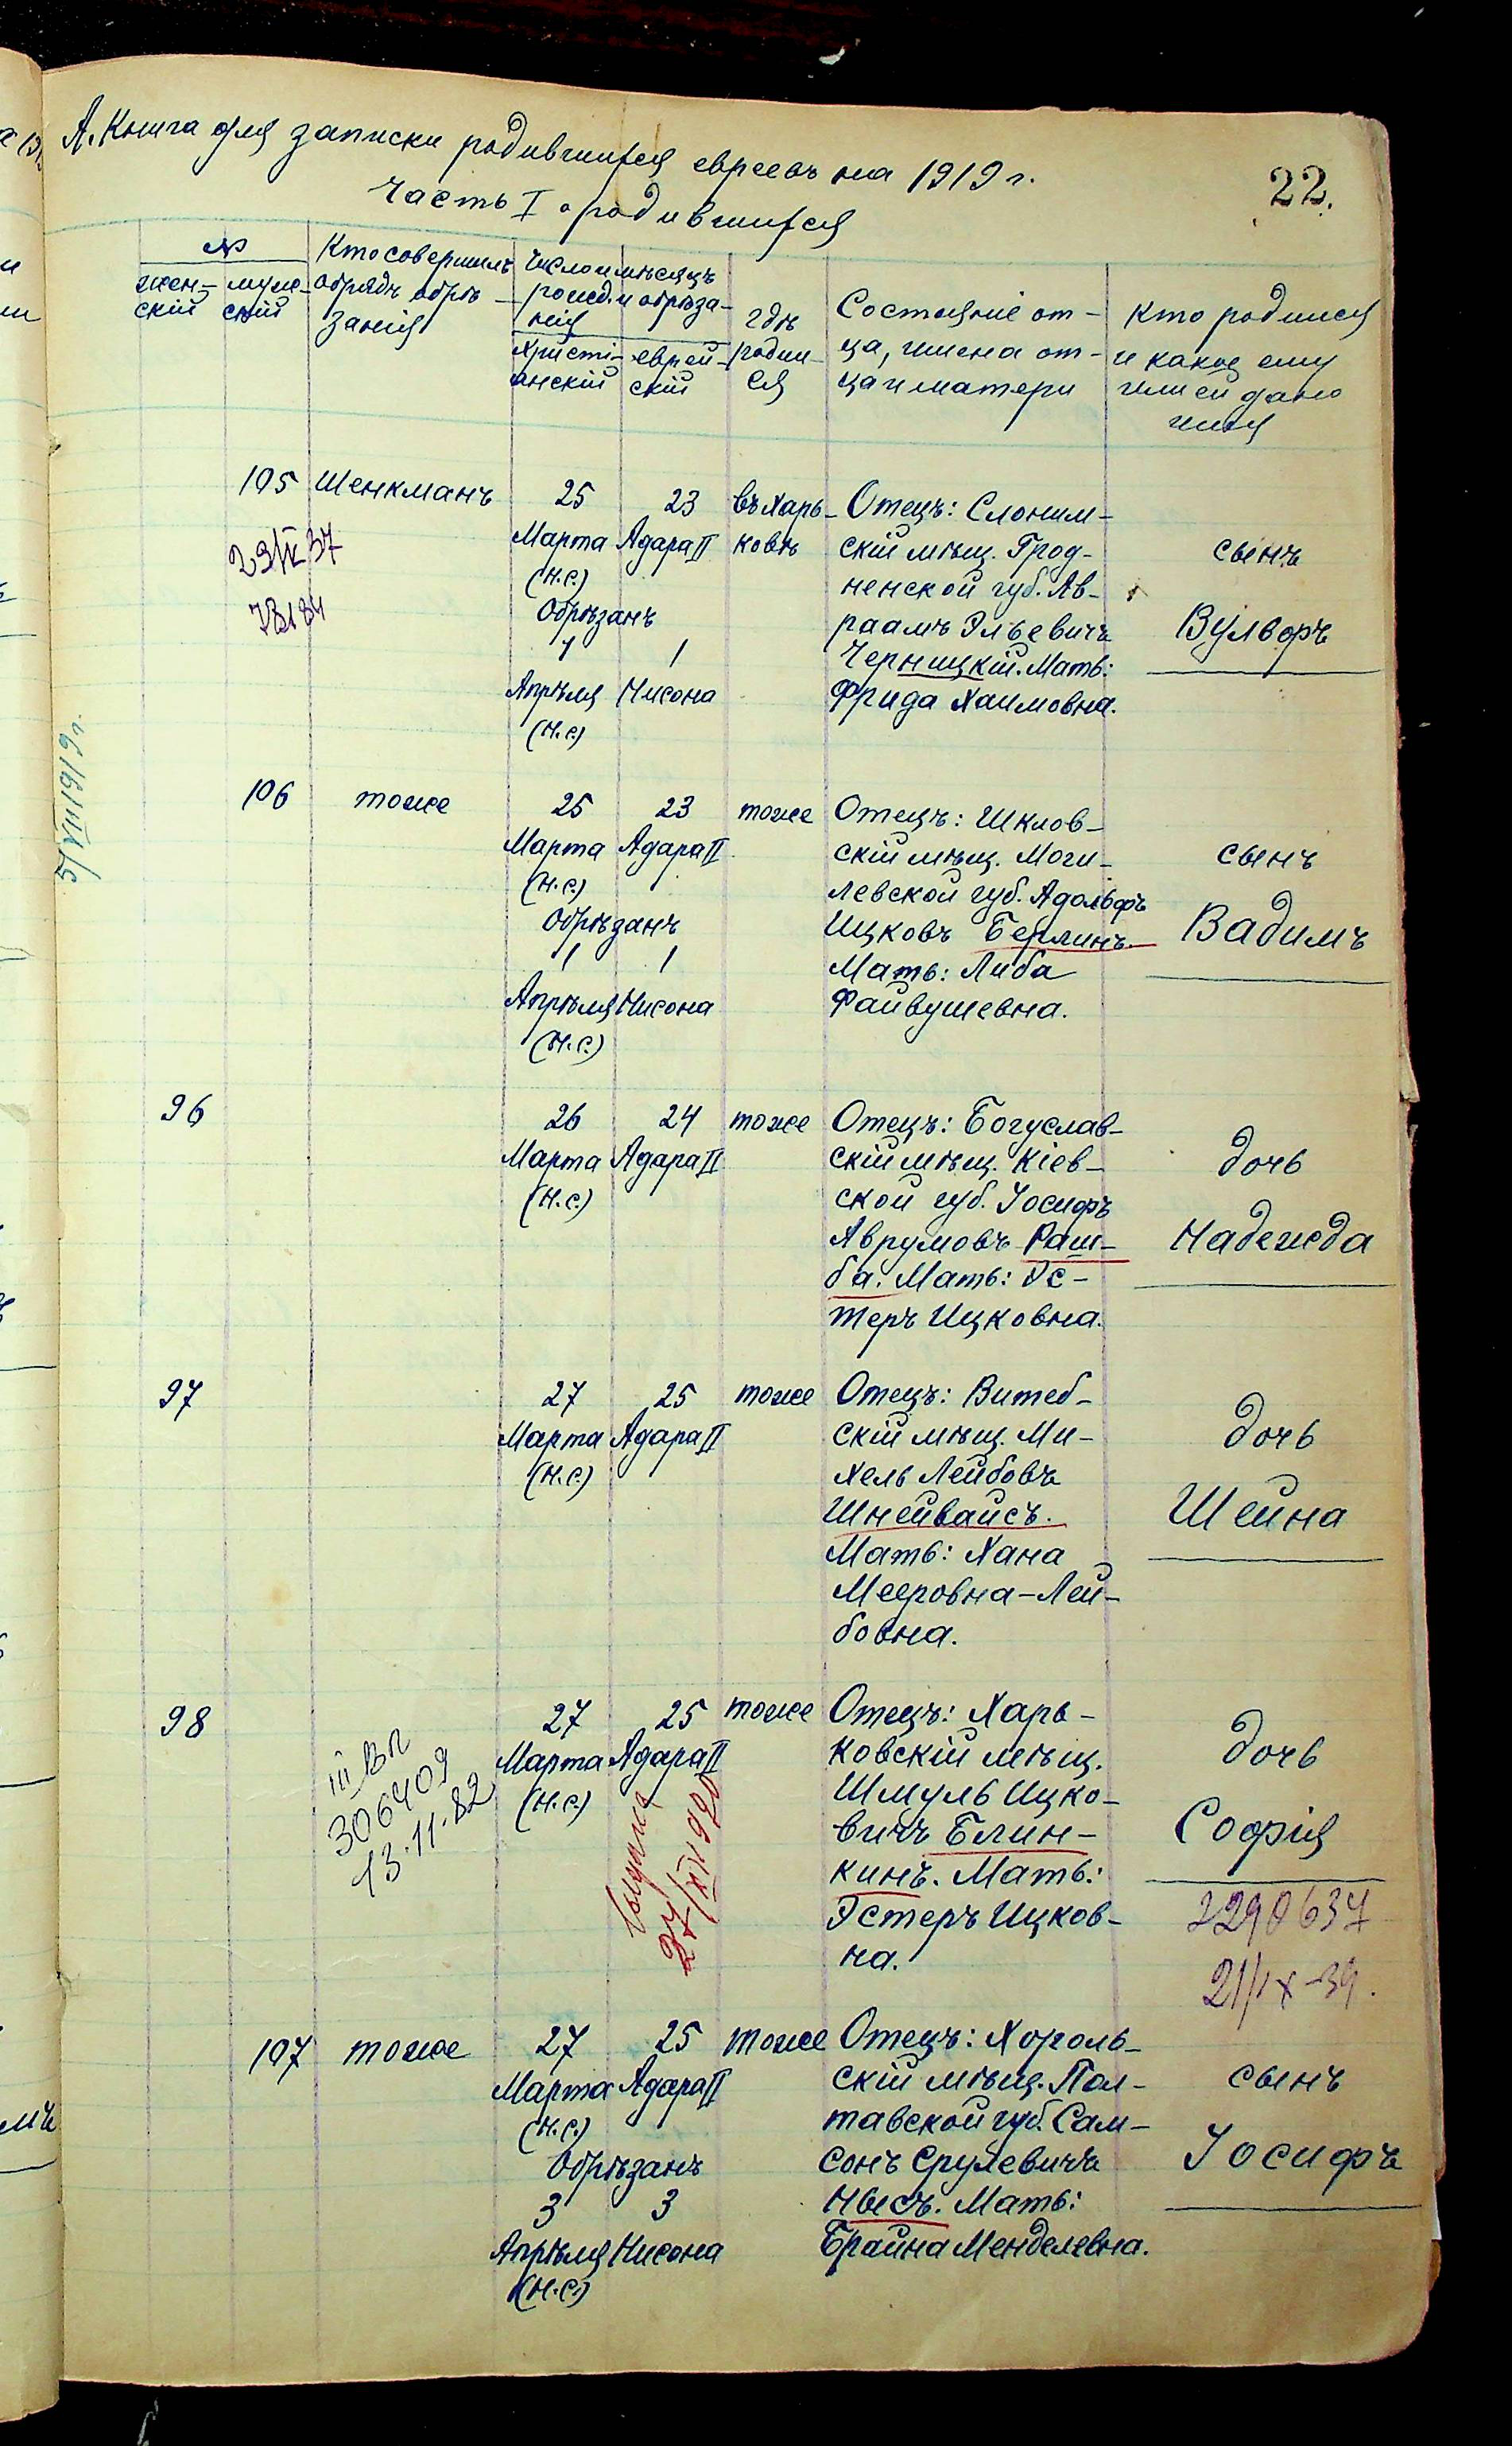 А. Книга для записки родившихся евреевъ на 1919 г.
Часть I о родившихся
22.
№
жен-
скій
муж-
ской
Кто совершилъ
обрядъ обрѣ-
занія
Число и мѣсяцъ
рожд. и обрѣза-
нія
Христі-
анскій
еврей-
скій
гдѣ
родил-
ся
Состояніе от-
ца, имена от-
ца и матери
Кто родился
и какое ему
или ей дано
имя
5/VII 1919 г.
105
Шенкманъ
25
Марта
(н.с.)
23
Адара II
Обрѣзанъ
1
Апрѣля
(н.с.)
1
Нисона
въ Харь-
ковѣ
Отецъ: Слоним-
скій мѣщ. Грод-
ненской губ. Ав-
раамъ Эльевичъ
Черницкій. Мать:
Фрида Хаимовна.
сынъ
Вульфъ
106
тоже
25
Марта
(н.с.)
23
Адара II
Обрѣзанъ
1
Апрѣля
(н.с.)
1
Нисона
тоже
Отецъ: Шклов-
скій мѣщ. Моги-
левской губ. Адольфъ
Ицковъ Берлинъ.
Мать: Либа
Файвушевна.
сынъ
Вадимъ
96
26
Марта
(н.с.)
24
Адара II
тоже
Отецъ: Богуслав-
скій мѣщ. Кіев-
ской губ. Іосифъ
Аврумовъ Раш-
ба. Мать: Эс-
теръ Ицковна.
дочь
Надежда
97
27
Марта
(н.с.)
25
Адара II
тоже
Отецъ: Витеб-
скій мѣщ. Ми-
хель Лейбовъ
Шнейвайсъ.
Мать: Хана
Мееровна-Лей-
бовна.
дочь
Шейна
98
III ВЛ
306409
13.11.82
27
Марта
(н.с.)
25
Адара II
27/XII 920
тоже
Отецъ: Харь-
ковскій мѣщ.
Шмуль Ицко-
вичъ Блин-
кинъ. Мать:
Эстеръ Ицков-
на.
дочь
Софія
2290637
21/IX-39.
107
тоже
27
Марта
(н.с.)
25
Адара II
Обрѣзанъ
3
Апрѣля
(н.с.)
3
Нисона
тоже
Отецъ: Хороль-
скій мѣщ. Пол-
тавской губ. Сам-
сонъ Срулевичъ
Нысъ. Мать:
Брайна Менделевна.
сынъ
Іосифъ